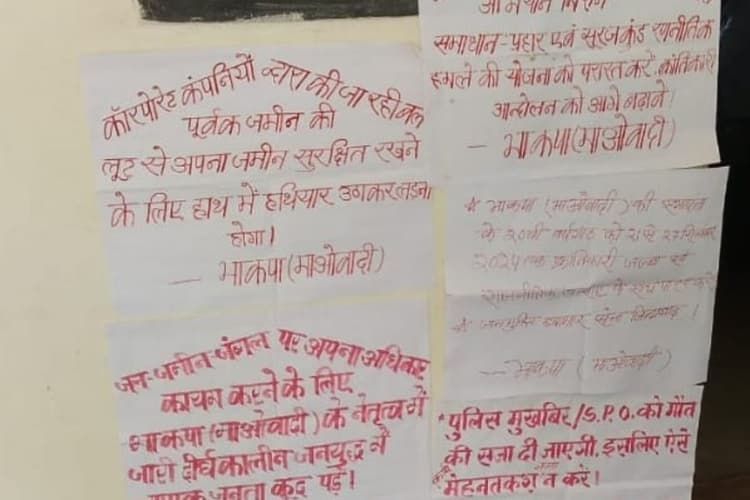 कॉरपोरेट कंपनियों द्वारा की जा रही बल
पूर्वक जमीन की
लूट से अपना जमीन सुरक्षित रखने
के लिए हाथ में हथियार उठाकर लड़ना
होगा।
— भाकपा (माओवादी)
जन-जमीन जंगल पर अपना अधिकार
कायम करने के लिए
भाकपा (माओवादी) के नेतृत्व में
जारी दीर्घकालीन जनयुद्ध में
जनता कूद पड़ें।
समाधान-प्रहार एवं सूरजकुंड रणनीतिक
हमले की योजना को परास्त करें, क्रांतिकारी
आन्दोलन को आगे बढ़ावें।
— भाकपा (माओवादी)
* भाकपा (माओवादी) की स्थापना
के 20वीं वर्षगांठ को 21 से 27 सितम्बर
2024 तक क्रांतिकारी
— भाकपा (माओवादी)
* पुलिस मुखबिर/S.P.O. को मौत
की सजा दी जाएगी, इसलिए ऐसे
मेहनतकश न करें।